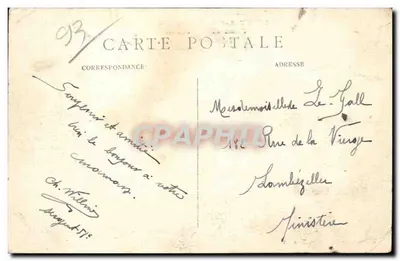 93
CARTE POSTALE
CORRESPONDANCE
ADRESSE
Souvenir et amitié
bien le bonjour à votre
maman.
Ch.
Sergent
Mesdemoiselles Le Gall
Rue de la Vierge
Lambézellec
Finistère
CPARAMA